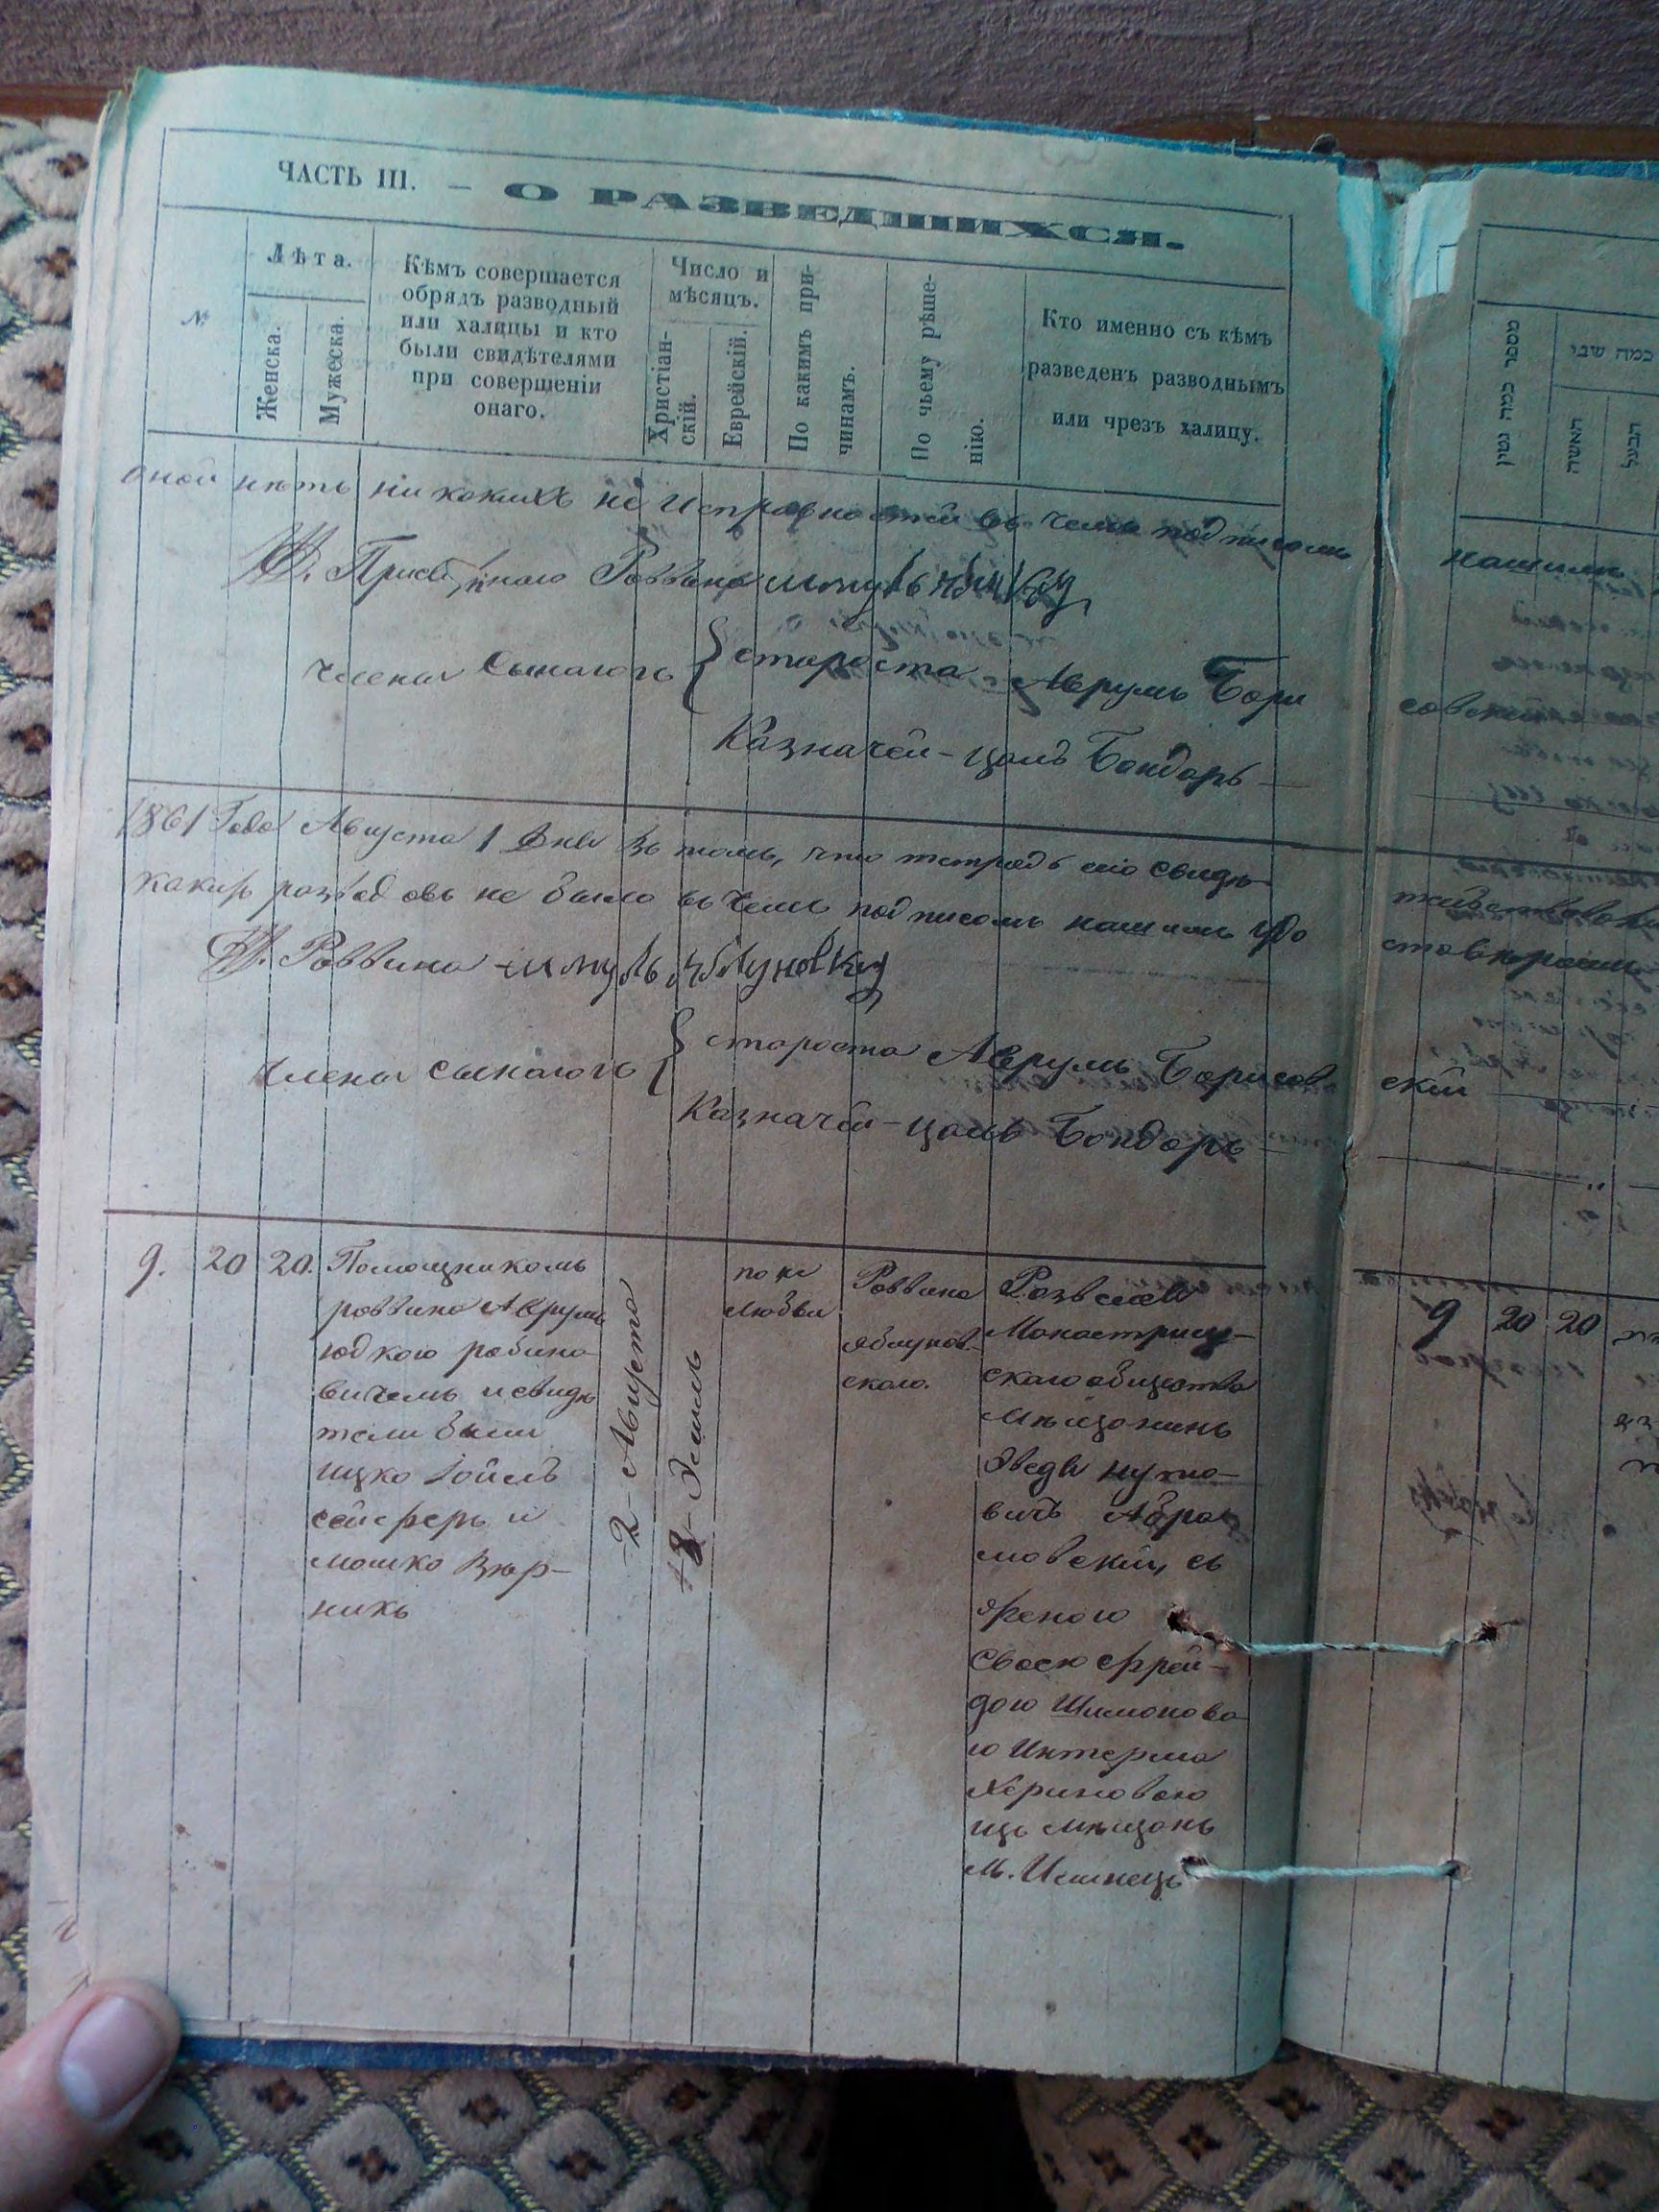 ЧАСТЬ III. — О РАЗВЕДШИХСЯ.
№
Лѣта.
Женска.
Мужеска.
Кѣмъ совершается
обрядъ разводный
или халицы и кто
были свидѣтелями
при совершеніи
онаго.
Число и
мѣсяцъ.
Христіан-
скій.
Еврейскій.
По какимъ при-
чинамъ.
По чьему рѣше-
нію.
Кто именно съ къмъ
разведенъ разводнымъ
или чрезъ халицу.
оной нѣтъ ни какихъ не исправностей въ чемъ подписомъ нашимъ
Раввина
члены сынагогъ { староста Аврумъ Бори совскій
Казначей - цаль Бондарь —
1861 Года Августа 1 дня въ томъ, что тетрадь сію свидѣ
какихъ разводовъ не было въ чемъ подписомъ нашимъ удо стовѣряемъ
Раввина Шмуль Яблуновкуй
члены сынагогъ { староста Аврумъ Борисов скій
Казначей - цаль Бондарь —
9. 20 20.
Помощникомъ
раввина Аврумъ
юдкою рабино
вичемъ и свидѣ
тели были
ицко Іойлъ
сейферъ и
мошко Вѣр-
никъ
2 - Августа
18 - Элилъ
по не
любви
Раввина
Яблунов-
скаго.
Розведен
Монастрищ-
скаго общества
мѣщанинъ
нухи-
вичъ Абра
мовскій, съ
женою
своею Фрей-
дою Шимонова
ю Интерма
херниковою
изъ мѣщанъ
м.
מספר כמה גטין
כמה שני
האשה
הבעל
9 20 20